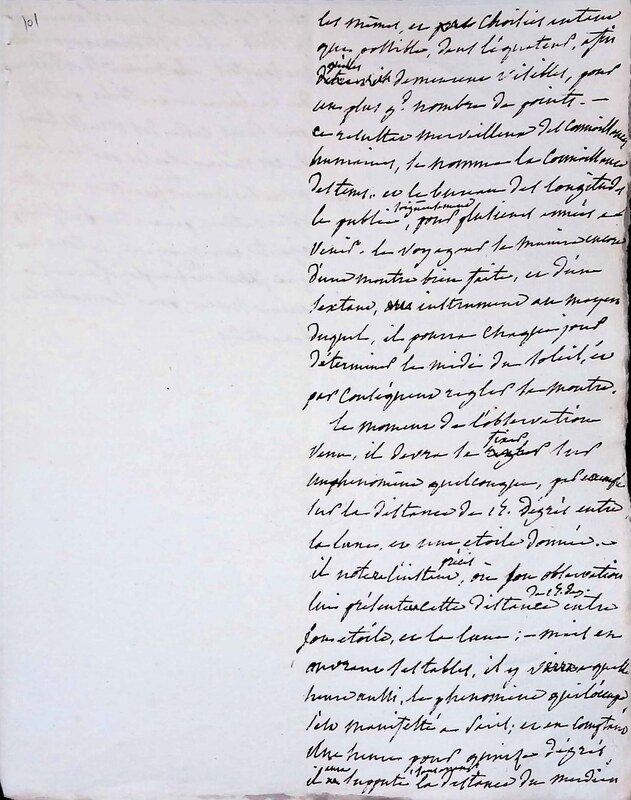 101
les mêmes, et choisies autant
que possible, dans l'équateur, afin
qu'elles demeurent visibles, pour
un plus gd. nombre de points. —
ce resultat merveilleux des connoissances
humaines, se nomme la connoissance
des tems. et le bureau des longitudes
le publie soigneusement, pour plusieurs années a
venir. le voyageur se munira encore
d'une montre bien faite, et d'un
sextant, instrument au moyen
duquel, il pourra chaque jour
déterminer le midi du soleil, et
par conséquent regler sa montre.
le moment de l'observation
venu, il devra se fixer sur
un phenomène quelconque, par exemple
sur la distance de 15. dégrés entre
la lune, et une étoile donnée. —
il notera l'instant précis, où son observation
lui présentera cette distance de 15. d. entre
son étoile, et la lune ; — mais en
ouvrant ses tables, il y verra a quelle
heure aussi, le phenomène qui l'occupe
s'est manifesté a Paris ; et en comptant
une heure pour quinze dégrés
il aura supputé la distance du meridien